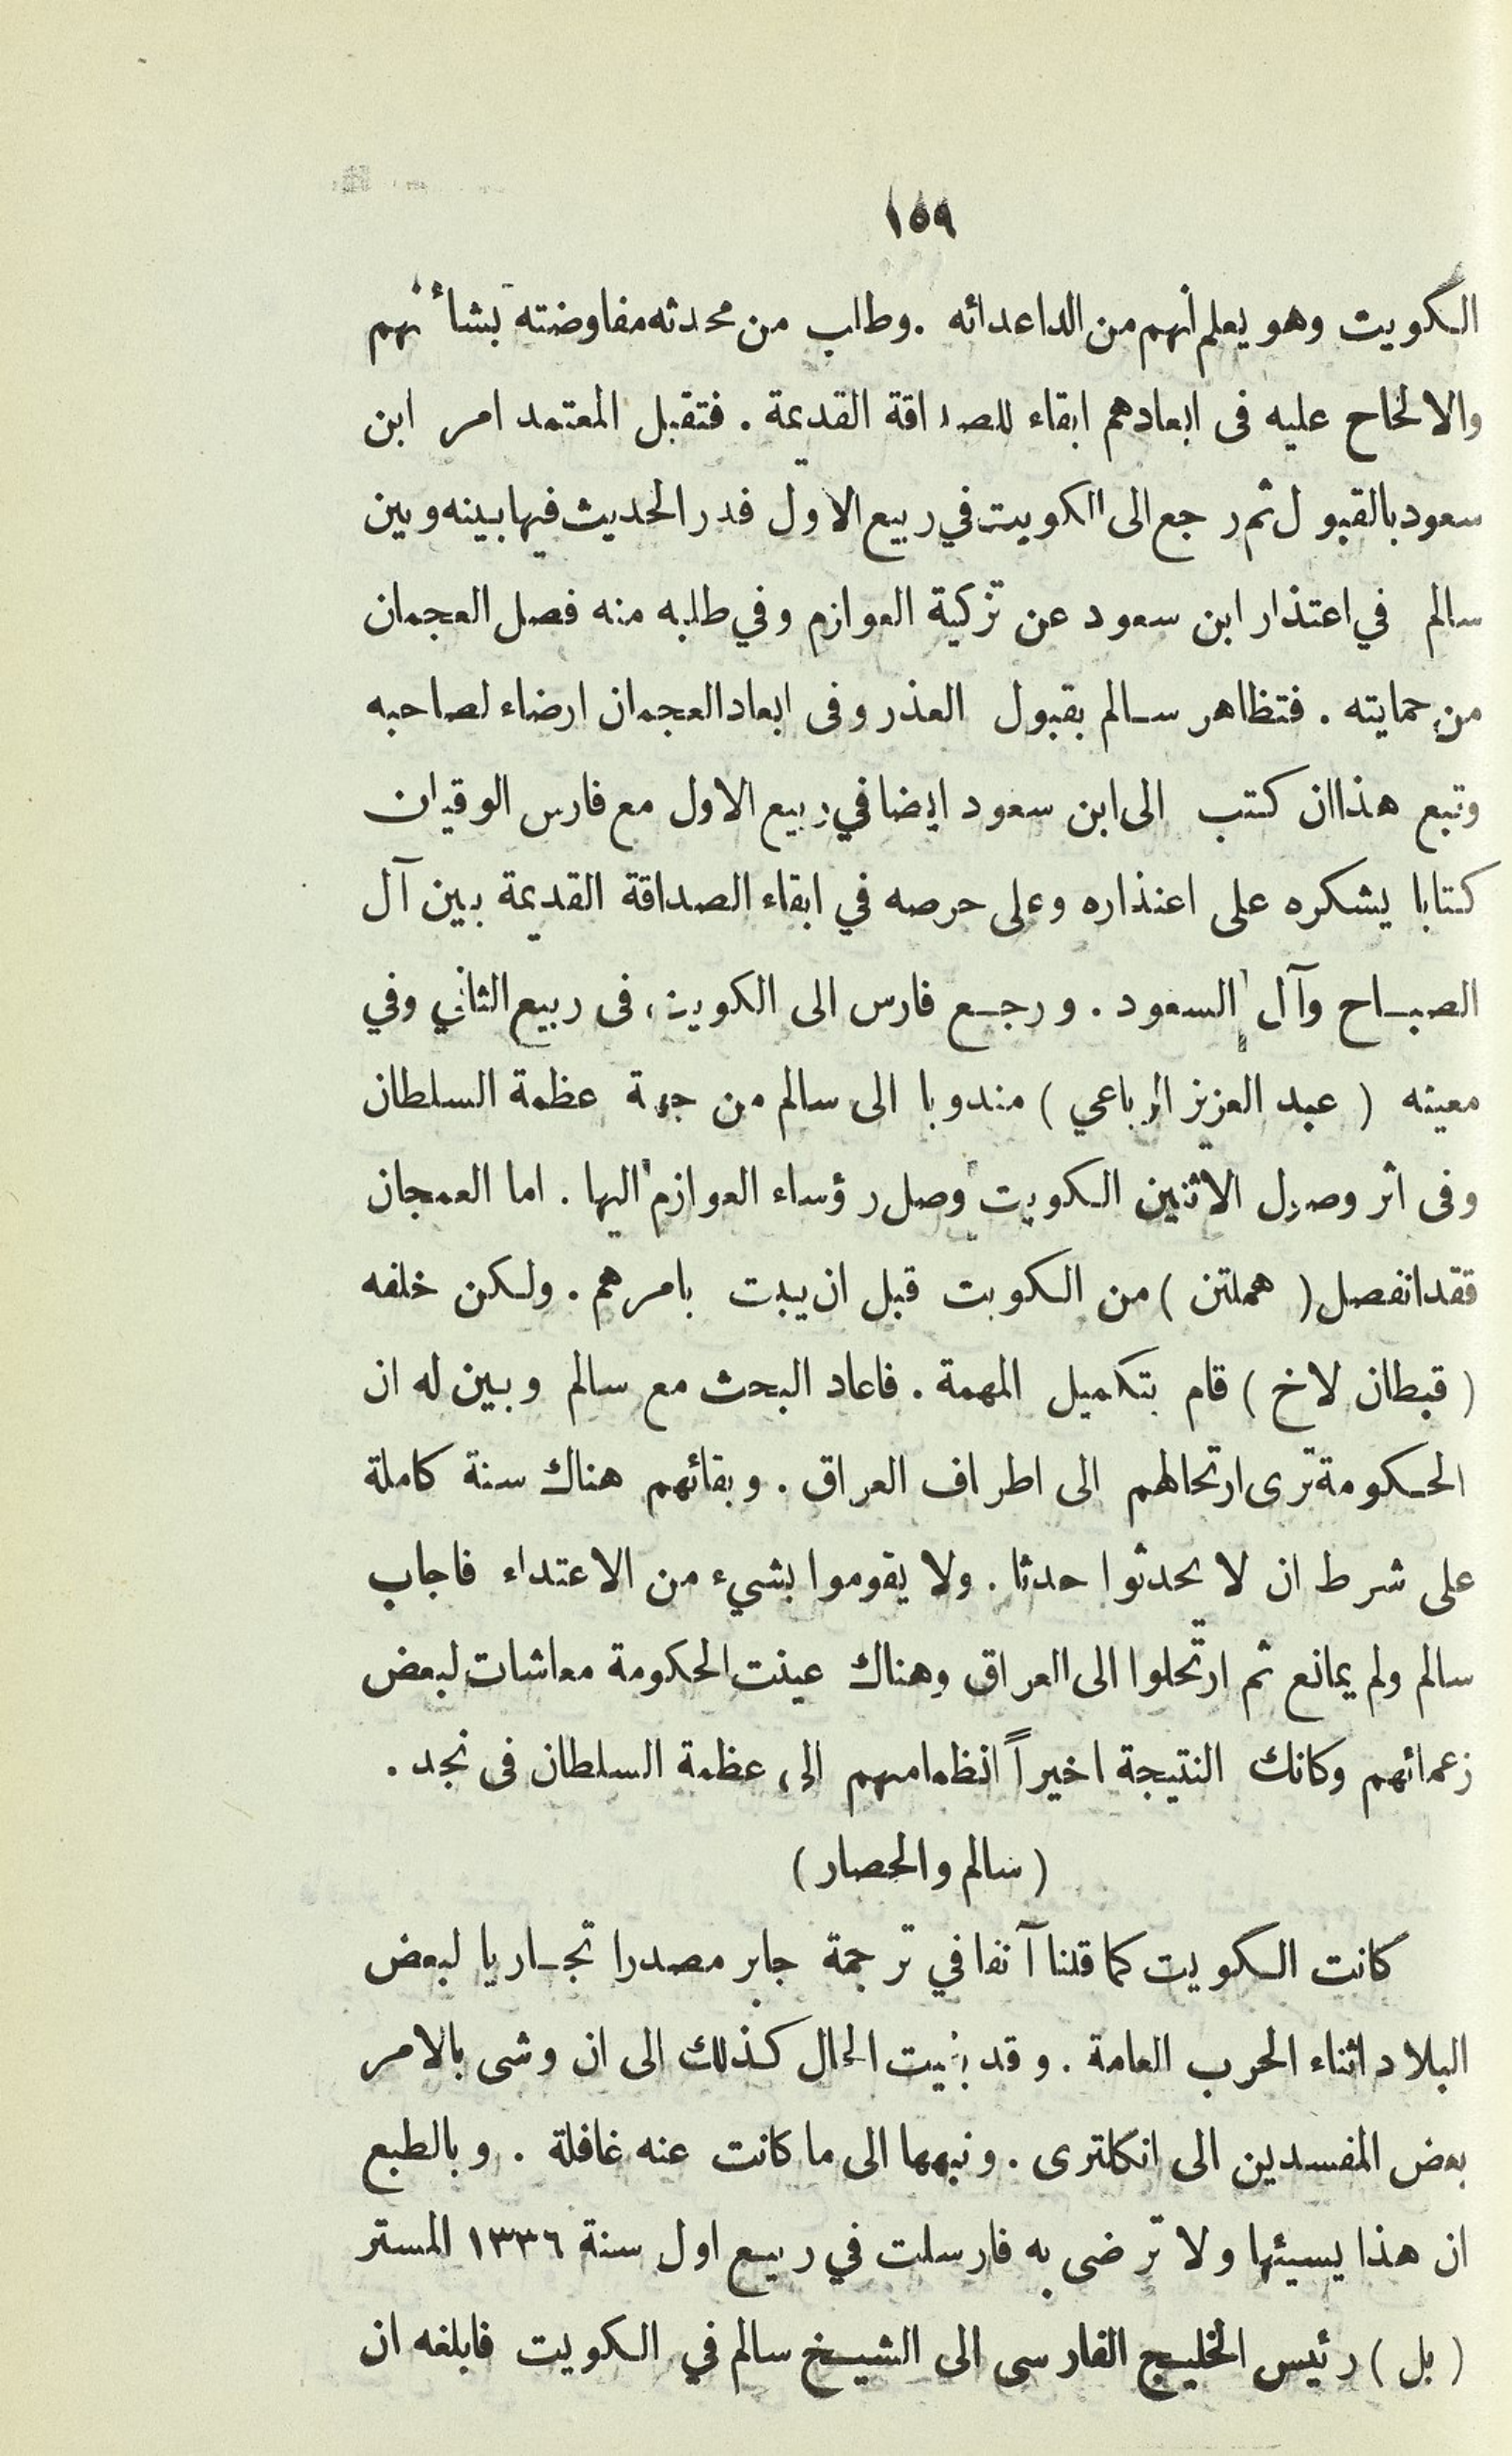 ١٥٩
الكويت وهو يعلم أنهم من الداعدائه . وطلب من محدثه مفاوضته بشأنهم
والالحاح عليه فى ابعادهم ابقاء للصداقة القديمة . فتقبل المعتمد امر ابن
سعود بالقبول ثم رجع الى الكويت في ربيع الاول فدر الحديث فيها بينه وبين
سالم في اعتذار ابن سعود عن تزكية العوازم وفي طلبه منه فصل العجمان
من حمايته . فتظاهر سالم بقبول العذر وفى ابعاد العجمان ارضاء لصاحبه
وتبع هذا ان كتب الى ابن سعود ايضا في ربيع الاول مع فارس الوقيان
كتابا يشكره على اعتذاره وعلى حرصه في ابقاء الصداقة القديمة بين آل
الصباح وآل السعود . ورجع فارس الى الكويت فى ربيع الثاني وفي
معيته ( عبد العزيز الرباعي ) مندوبا الى سالم من جهة عظمة السلطان
وفى اثر وصول الاثنين الكويت وصل رؤساء العوازم اليها . اما العمجان
فقد انفصل ( هملتن ) من الكويت قبل ان يبت بامرهم . ولكن خلفه
( قبطان لاخ ) قام بتكميل المهمة . فاعاد البحث مع سالم وبين له ان
الحكومة ترى ارتحالهم الى اطراف العراق . وبقائهم هناك سنة كاملة
على شرط ان لا يحدثوا حدثا . ولا يقوموا بشيء من الاعتداء فاجاب
سالم ولم يمانع ثم ارتحلوا الى العراق وهناك عينت الحكومة معاشات لبعض
زعمائهم وكانك النتيجة اخيراً انظمامهم الى عظمة السلطان فى نجد .
( سالم والحصار )
كانت الكويت كما قلنا آنفا في ترجمة جابر مصدرا تجاريا لبعض
البلاد اثناء الحرب العامة . وقد بقيت الحال كذلك الى ان وشى بالامر
بعض المفسدين الى انكلترى . ونبهها الى ما كانت عنه غافلة . وبالطبع
ان هذا يسيئها ولا ترضى به فارسلت في ربيع اول سنة ١٣٣٦ المستر
( بل ) رئيس الخليج الفارسى الى الشيخ سالم في الكويت فابلغه ان